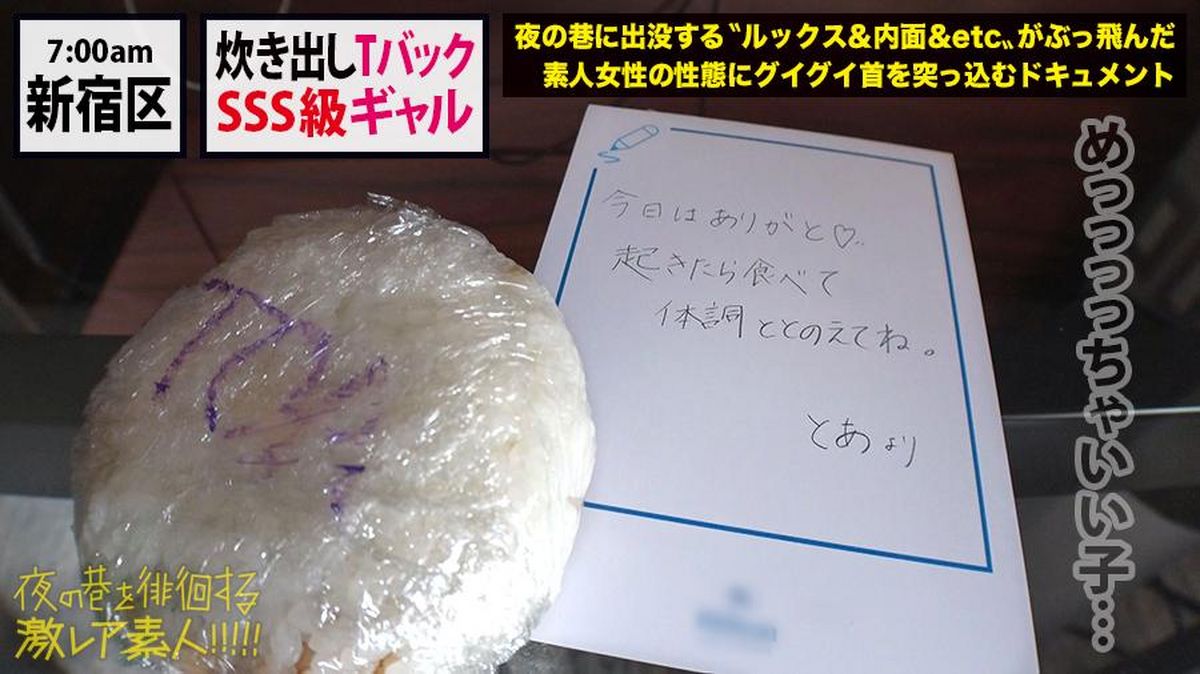 7:00am
新宿区
炊き出しTバック
SSS級ギャル
夜の巷に出没する〝ルックス&内面&etc〟がぶっ飛んだ
素人女性の性態にグイグイ首を突っ込むドキュメント
今日はありがと♡
起きたら食べて
体調ととのえてね。
とあより
めっっっっちゃいい子…
夜の巷を徘徊する
激レア素人!!!!!